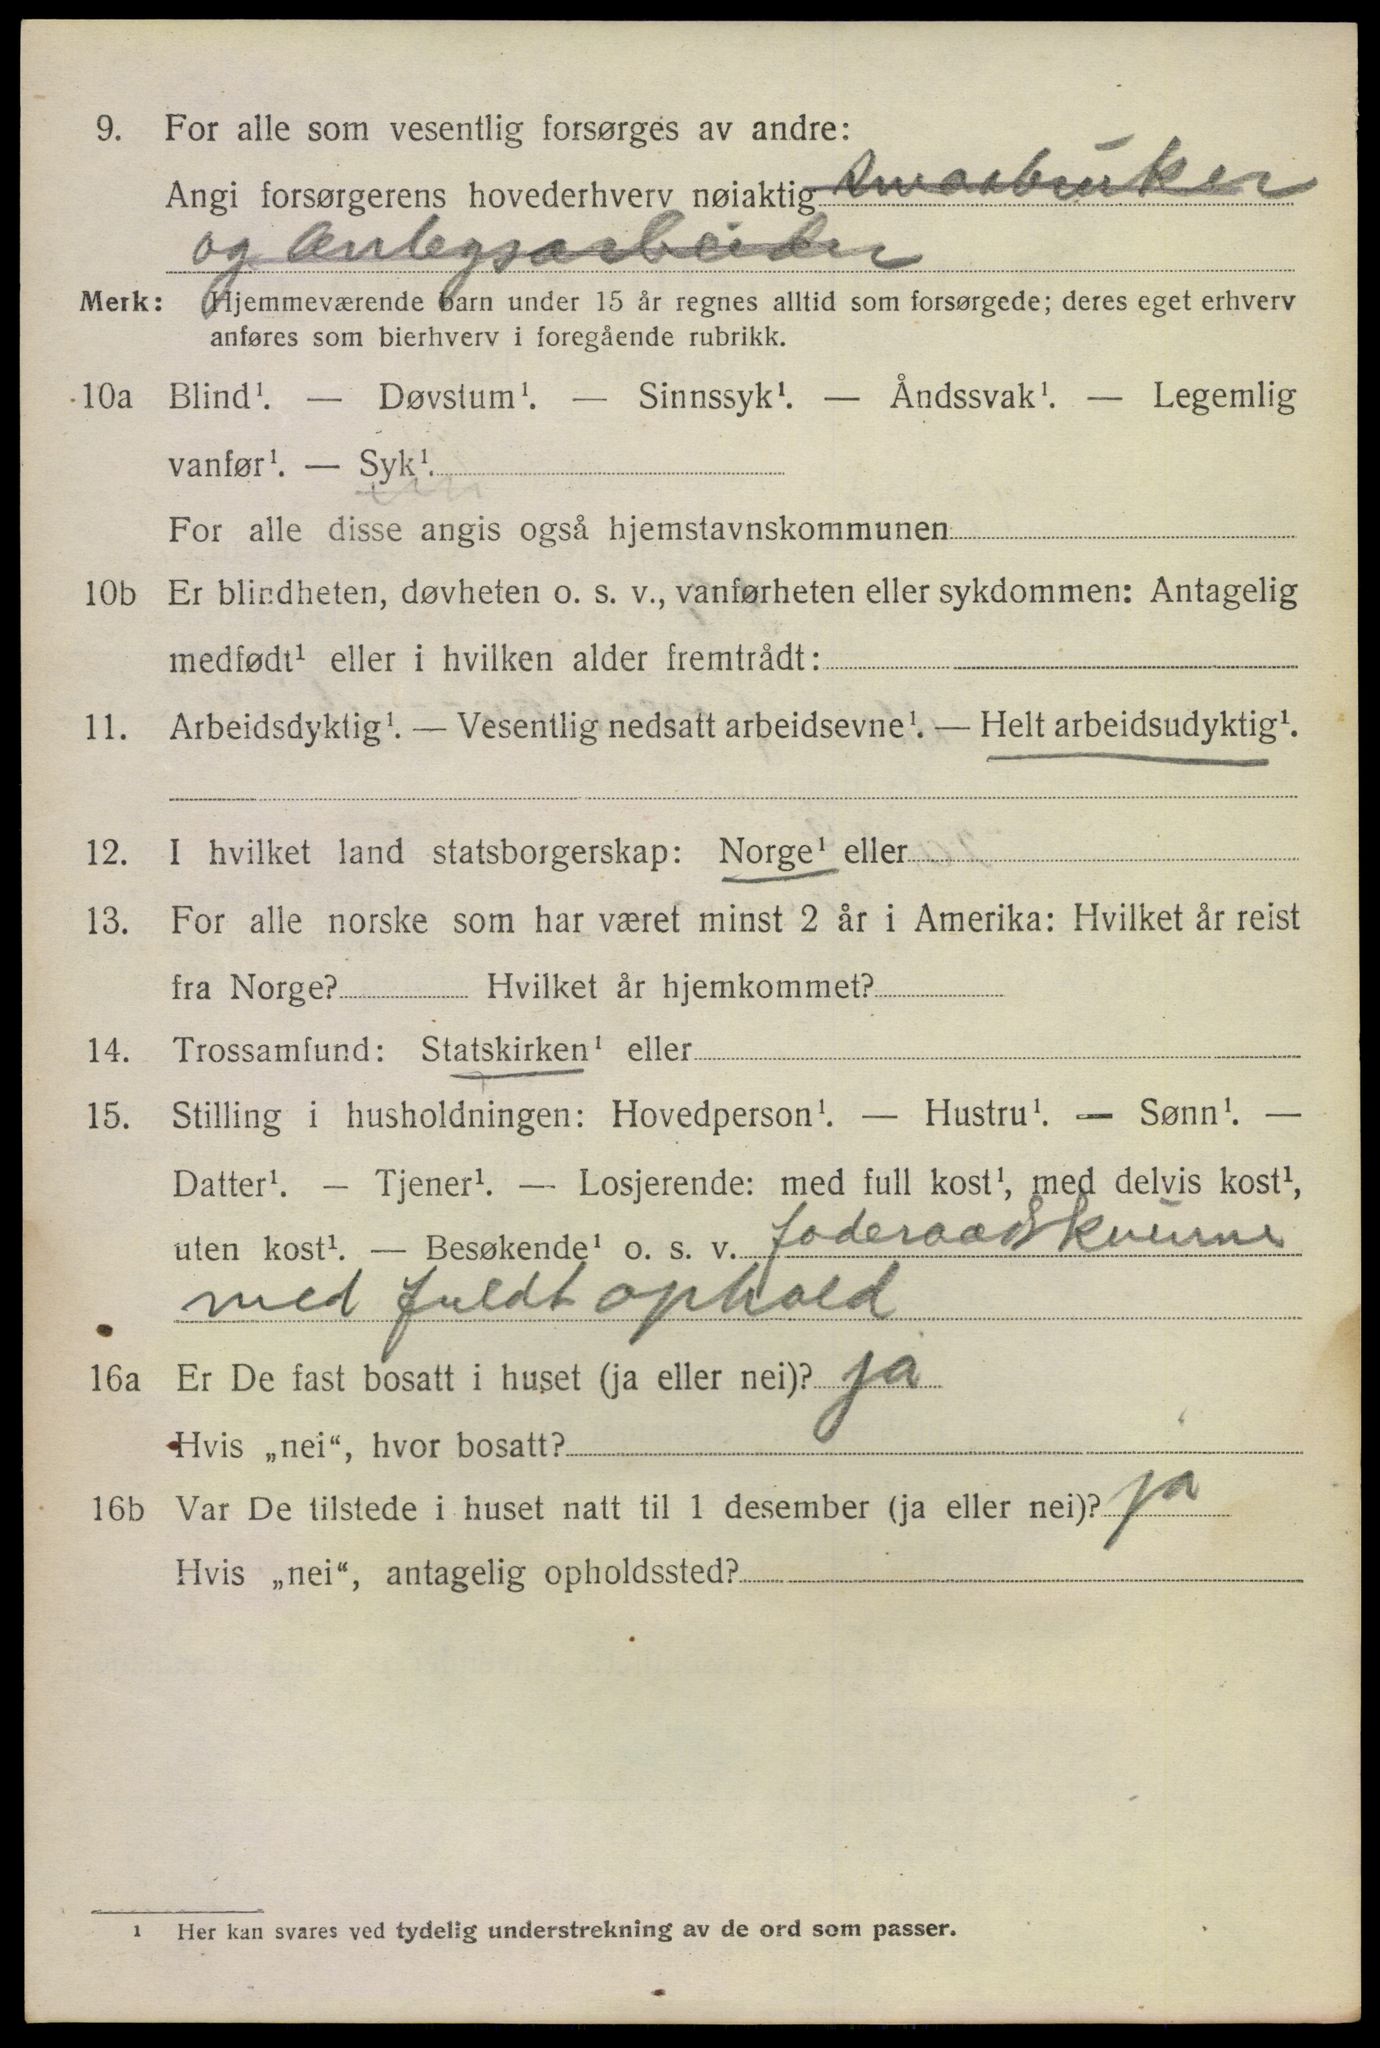 9. For alle som vesentlig forsørges av andre:
Angi forsørgerens hovederhverv nøiaktig smaabruker
og Anlegsarbeider
Merk: Hjemmeværende barn under 15 år regnes alltid som forsørgede; deres eget erhverv
anføres som bierhverv i foregående rubrikk.
10a Blind¹. — Døvstum¹. — Sinnssyk¹. — Åndssvak¹. — Legemlig
vanfør¹. — Syk¹.
For alle disse angis også hjemstavnskommunen
10b Er blindheten, døvheten o. s. v., vanførheten eller sykdommen: Antagelig
medfødt¹ eller i hvilken alder fremtrådt:
11. Arbeidsdyktig¹. — Vesentlig nedsatt arbeidsevne¹. — Helt arbeidsudyktig¹.
12. I hvilket land statsborgerskap: Norge¹ eller
13. For alle norske som har været minst 2 år i Amerika: Hvilket år reist
fra Norge? Hvilket år hjemkommet?
14. Trossamfund: Statskirken¹ eller
15. Stilling i husholdningen: Hovedperson¹. — Hustru¹. — Sønn¹. —
Datter¹. — Tjener¹. — Losjerende: med full kost¹, med delvis kost¹,
uten kost¹. — Besøkende¹ o. s. v. foderaadskvinne
med fuldt ophold
16a Er De fast bosatt i huset (ja eller nei)? ja
Hvis „nei“, hvor bosatt?
16b Var De tilstede i huset natt til 1 desember (ja eller nei)? ja
Hvis „nei“, antagelig opholdssted?
1 Her kan svares ved tydelig understrekning av de ord som passer.